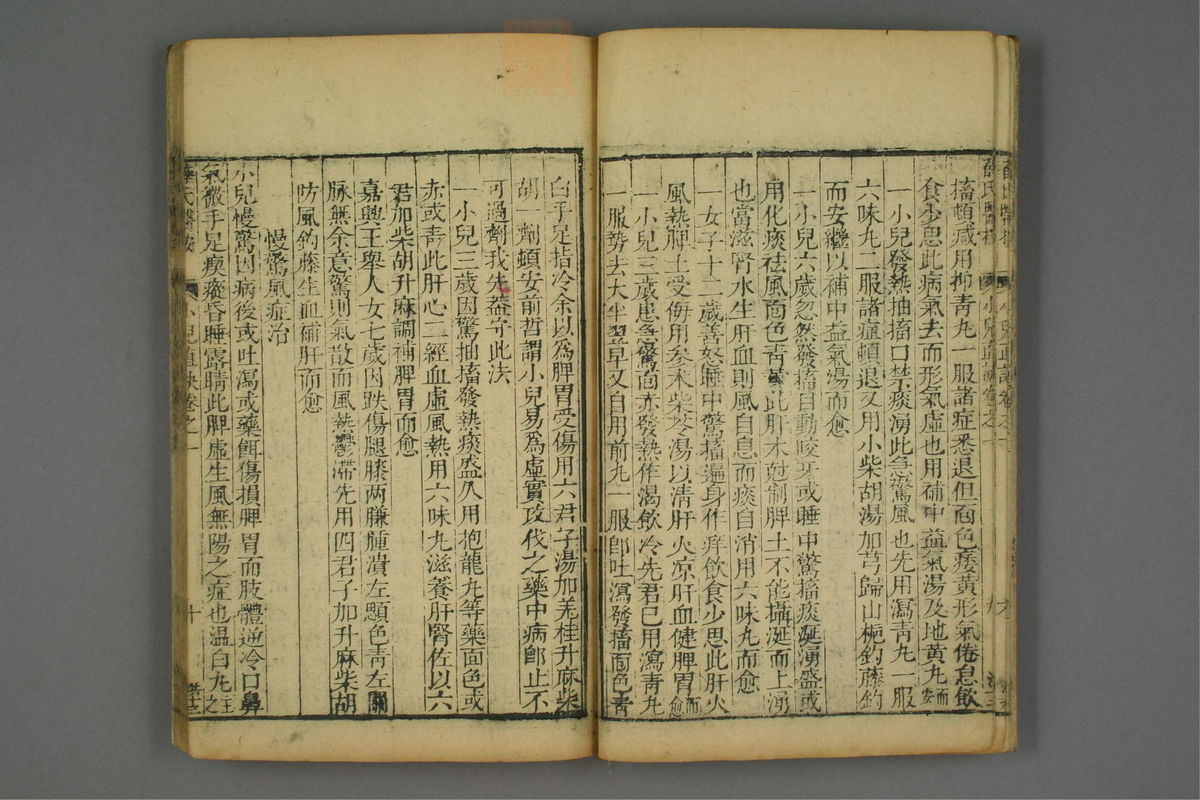 搐頓減用抑青丸一服諸症悉退但面色痿黃形氣倦怠飲
食少思此病氣去而形氣虛也用補中益氣湯及地黃丸而安
一小兒發熱抽搐口禁痰湧此急驚風也先用瀉青丸一服
六味丸二服諸症頓退又用小柴胡湯加芎歸山梔釣藤鈎
而安繼以補中益氣湯而愈
一小兒六歲忽然發搐目動咬牙或睡中驚搐痰涎湧盛或
用化痰祛風面色青此肝木尅制脾土不能攝涎而上湧
也當滋腎水生肝血則風自息而痰自消用六味丸而愈
一女子十二歲善怒睡中驚搐遍身作痒飲食少思此肝火
風熱脾土受侮用參朮柴苓湯以清肝火凉肝血健脾胃而愈
一小兒三歲患急驚面赤發熱作渴飲冷先君已用瀉青丸
一服勢去大半翌早又自用前丸一服卽吐瀉發搐面色靑
白手足指冷余以爲脾胃受傷用六君子湯加羌桂升麻柴
胡一劑頓安前哲謂小兒易爲虛實攻伐之藥中病卽止不
可過劑我先益守此法
一小兒三歲因驚抽搐發熱痰盛久用抱龍丸等藥面色或
赤或青此肝心二經血虛風熱用六味丸滋養肝腎佐以六
君加柴胡升麻調補脾胃而愈
嘉興王舉人女七歲因跌傷腿膝两臁腫潰左顋色青左關
脉無余意驚則氣散而風熱鬱滯先用四君子加升麻柴胡
防風釣藤生血補肝而愈
慢驚風症治
小兒慢驚因病後或吐瀉或藥餌傷損脾胃而肢體逆冷口鼻
氣微手足瘈瘲昏睡露睛此脾虛生風無陽之症也温白丸主之
薛氏醫按 小兒直訣卷之一 十